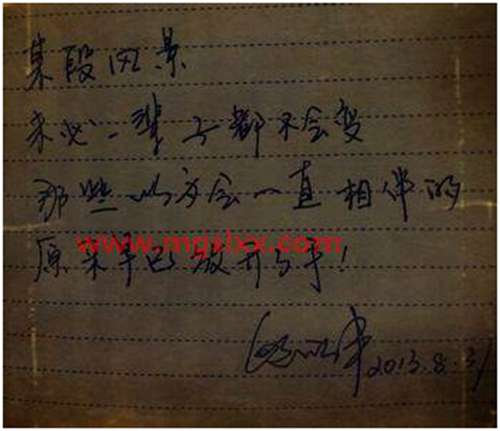 某段风景
未必一辈子都不会变
那些以为会一直相伴的
www.mgslxx.com
原来早已放开了手!
2013.8.31